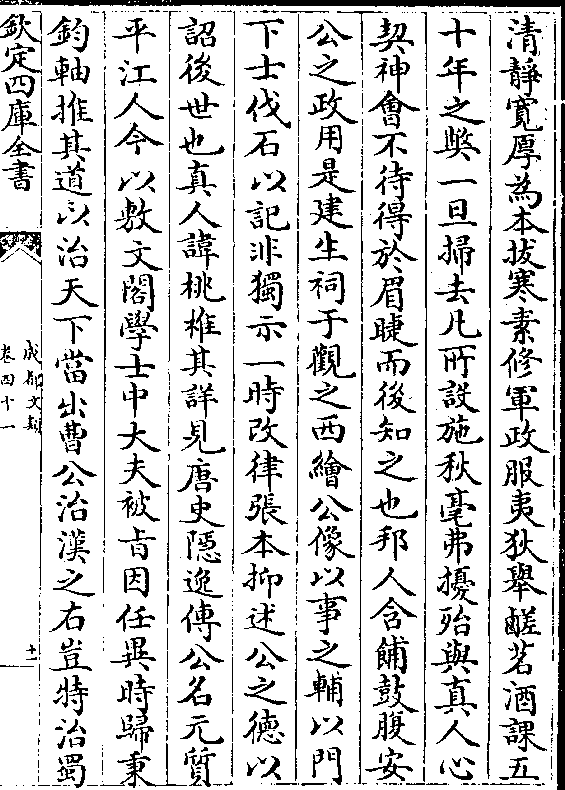 清靜寛厚為本拔寒素修軍政服夷狄舉鹺茗酒課五
十年之弊一旦掃去凡所設施秋毫弗擾殆與真人心
契神會不待得於眉睫而後知之也邦人含餔鼓腹安
公之政用是建生祠于觀之西繪公像以事之輔以門
下士伐石以記非獨示一時改律張本抑述公之德以
詔後世也真人諱桃椎其詳見唐史隱逸傳公名元質
平江人今以敷文閣學士中大夫被㫖因任異時歸秉
鈞軸推其道以治天下當出曹公治漢之右豈特治蜀
欽定四庫全書
成都文類
卷四十一
十一